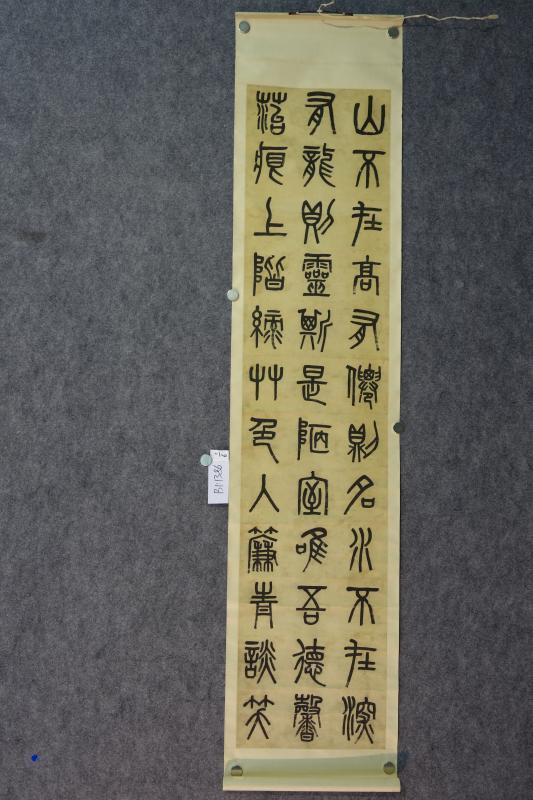 山不在高有僊則名水不在深
有龍則靈斯是陋室唯吾德馨
菭痕上階綠艸色入簾青談笑
B1:1386